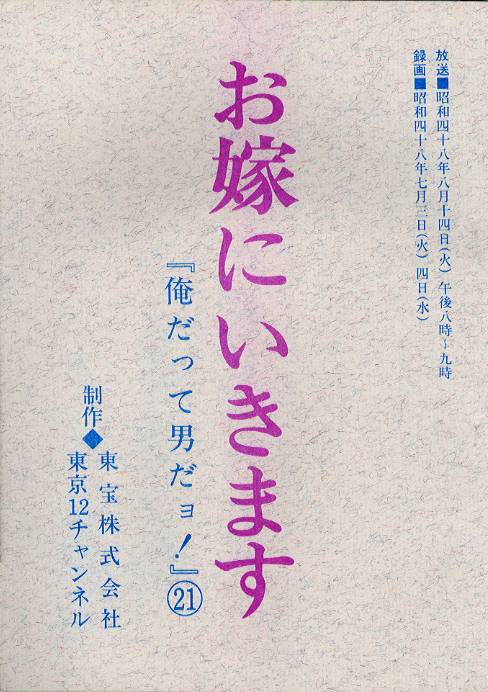 放送■昭和四十八年八月十四日(火)午後八時~九時
録画■昭和四十八年七月三日(火)四日(水)
お嫁にいきます
『俺だって男だョ!』㉑
制作◆東宝株式会社
東京12チャンネル